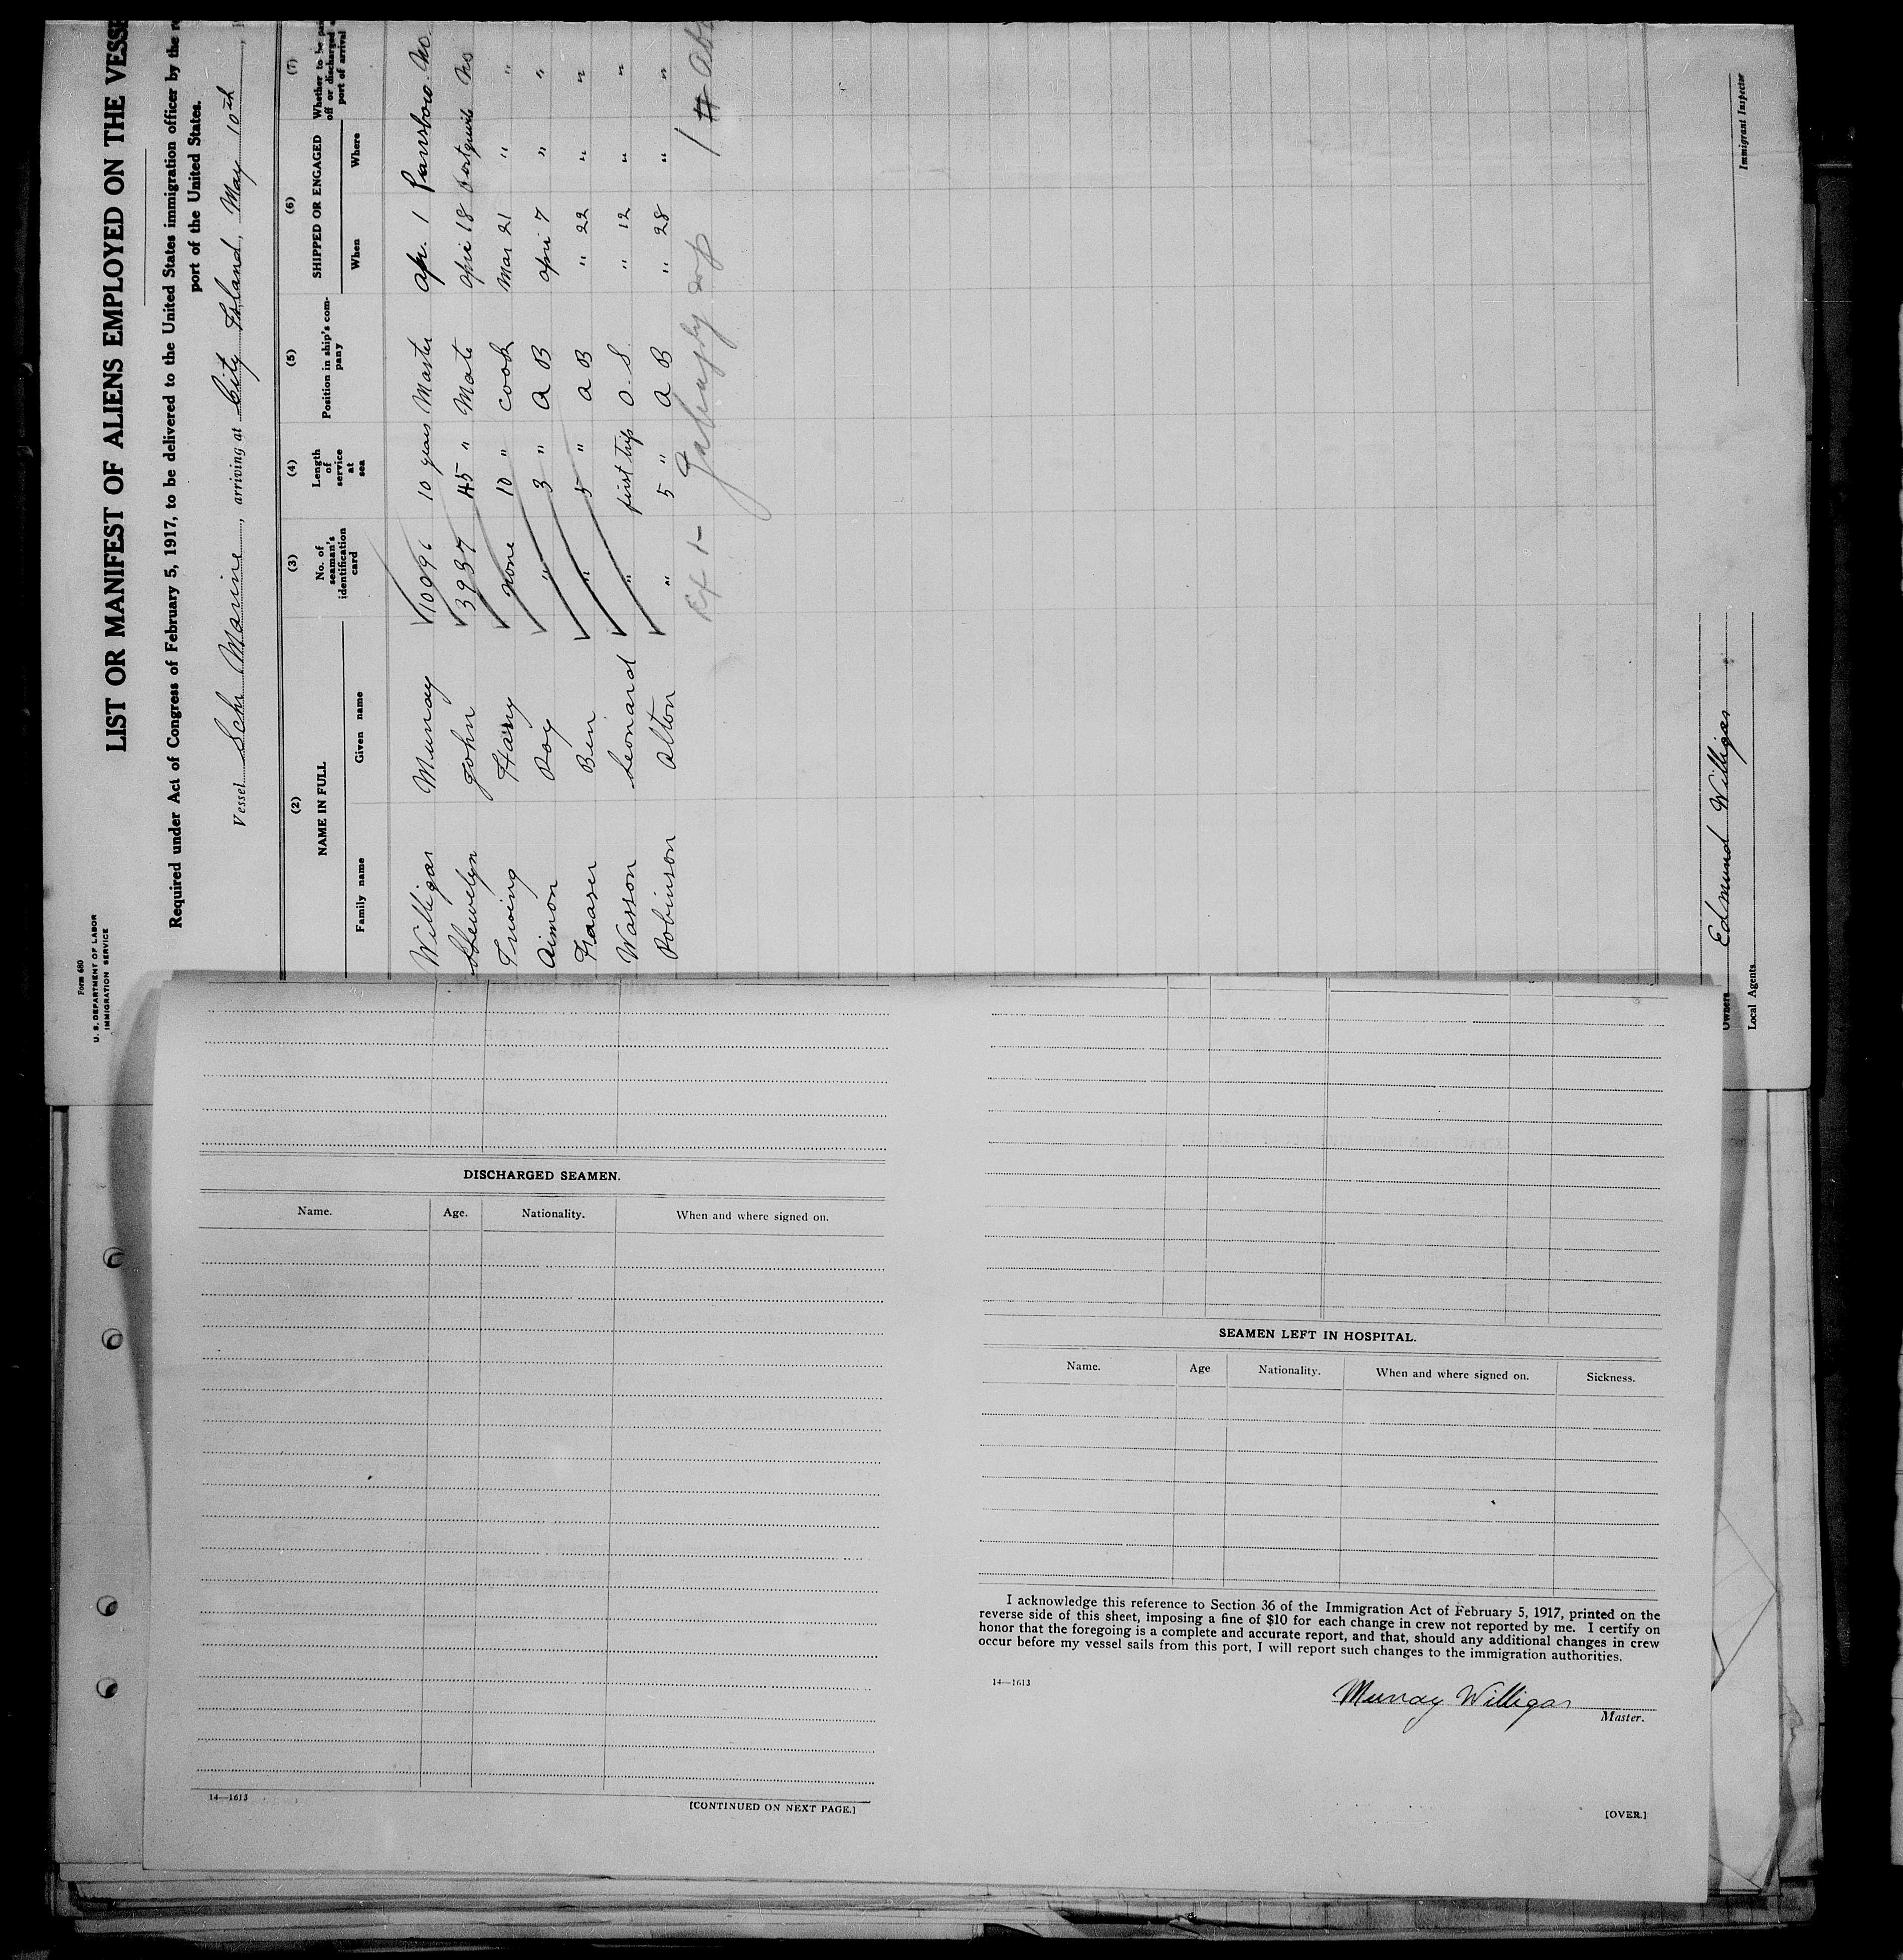 Form 680
U. S. DEPARTMENT OF LABOR
IMMIGRATION SERVICE
LIST OR MANIFEST OF ALIENS EMPLOYED ON THE VESSE
Required under Act of Congress of February 5, 1917, to be delivered to the United States immigration officer by the r
port of the United States.
Vessel Schr Marine, arriving at City Island, May 10th,
(2) (3) (4) (5) (6) (7)
NAME IN FULL
Family name Given name
No. of seaman's identification card
Length of service at sea
Position in ship's company
SHIPPED OR ENGAGED
When Where
Whether to be pai
off or discharged a
port of arrival
Willigar Murray 10996 10 years Master Apr. 1 Parrsboro No
Llewelyn John 3937 45 " Mate Apri 18 No
Irving Harry none 10 " cook Mar 21 " "
Aimon Roy " 3 " A B Apri 7 " "
Fraaser Ben " 5 " A B " 22 " "
Wasson Leonard " first trip O. S. " 12 " "
Robinson Alton " 5 " A B " 28 " "
Owners Edmund Williger
Local Agents
Immigrant Inspector
DISCHARGED SEAMEN.
Name. Age. Nationality. When and where signed on.
14—1613
[CONTINUED ON NEXT PAGE.]
SEAMEN LEFT IN HOSPITAL.
Name. Age Nationality. When and where signed on. Sickness.
I acknowledge this reference to Section 36 of the Immigration Act of February 5, 1917, printed on the
reverse side of this sheet, imposing a fine of $10 for each change in crew not reported by me. I certify on
honor that the foregoing is a complete and accurate report, and that, should any additional changes in crew
occur before my vessel sails from this port, I will report such changes to the immigration authorities.
14—1613
Murray Willigar
Master.
[OVER.]